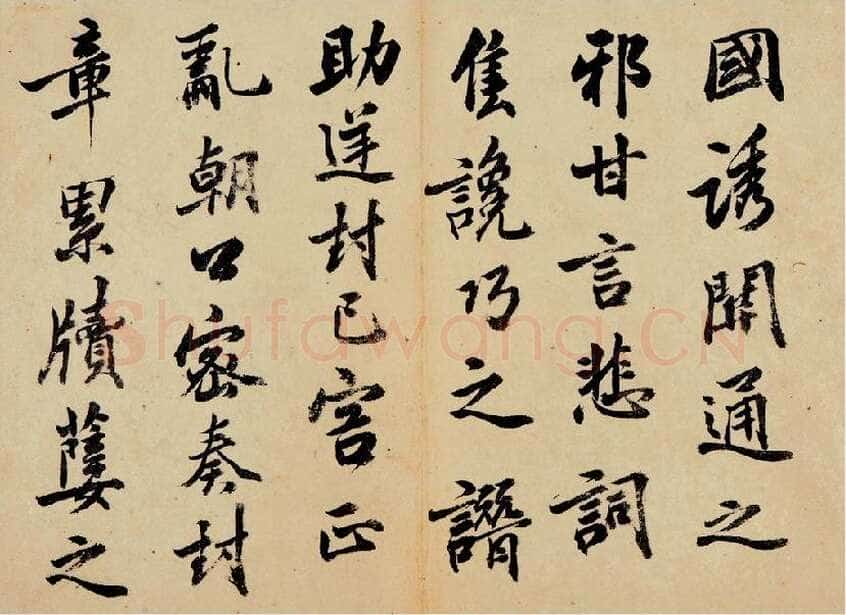 國誘開通之
邪甘言悲詞
售讒巧之譖
助逆封已害正
亂朝口密奏封
章累牘之
Shufawang.CN